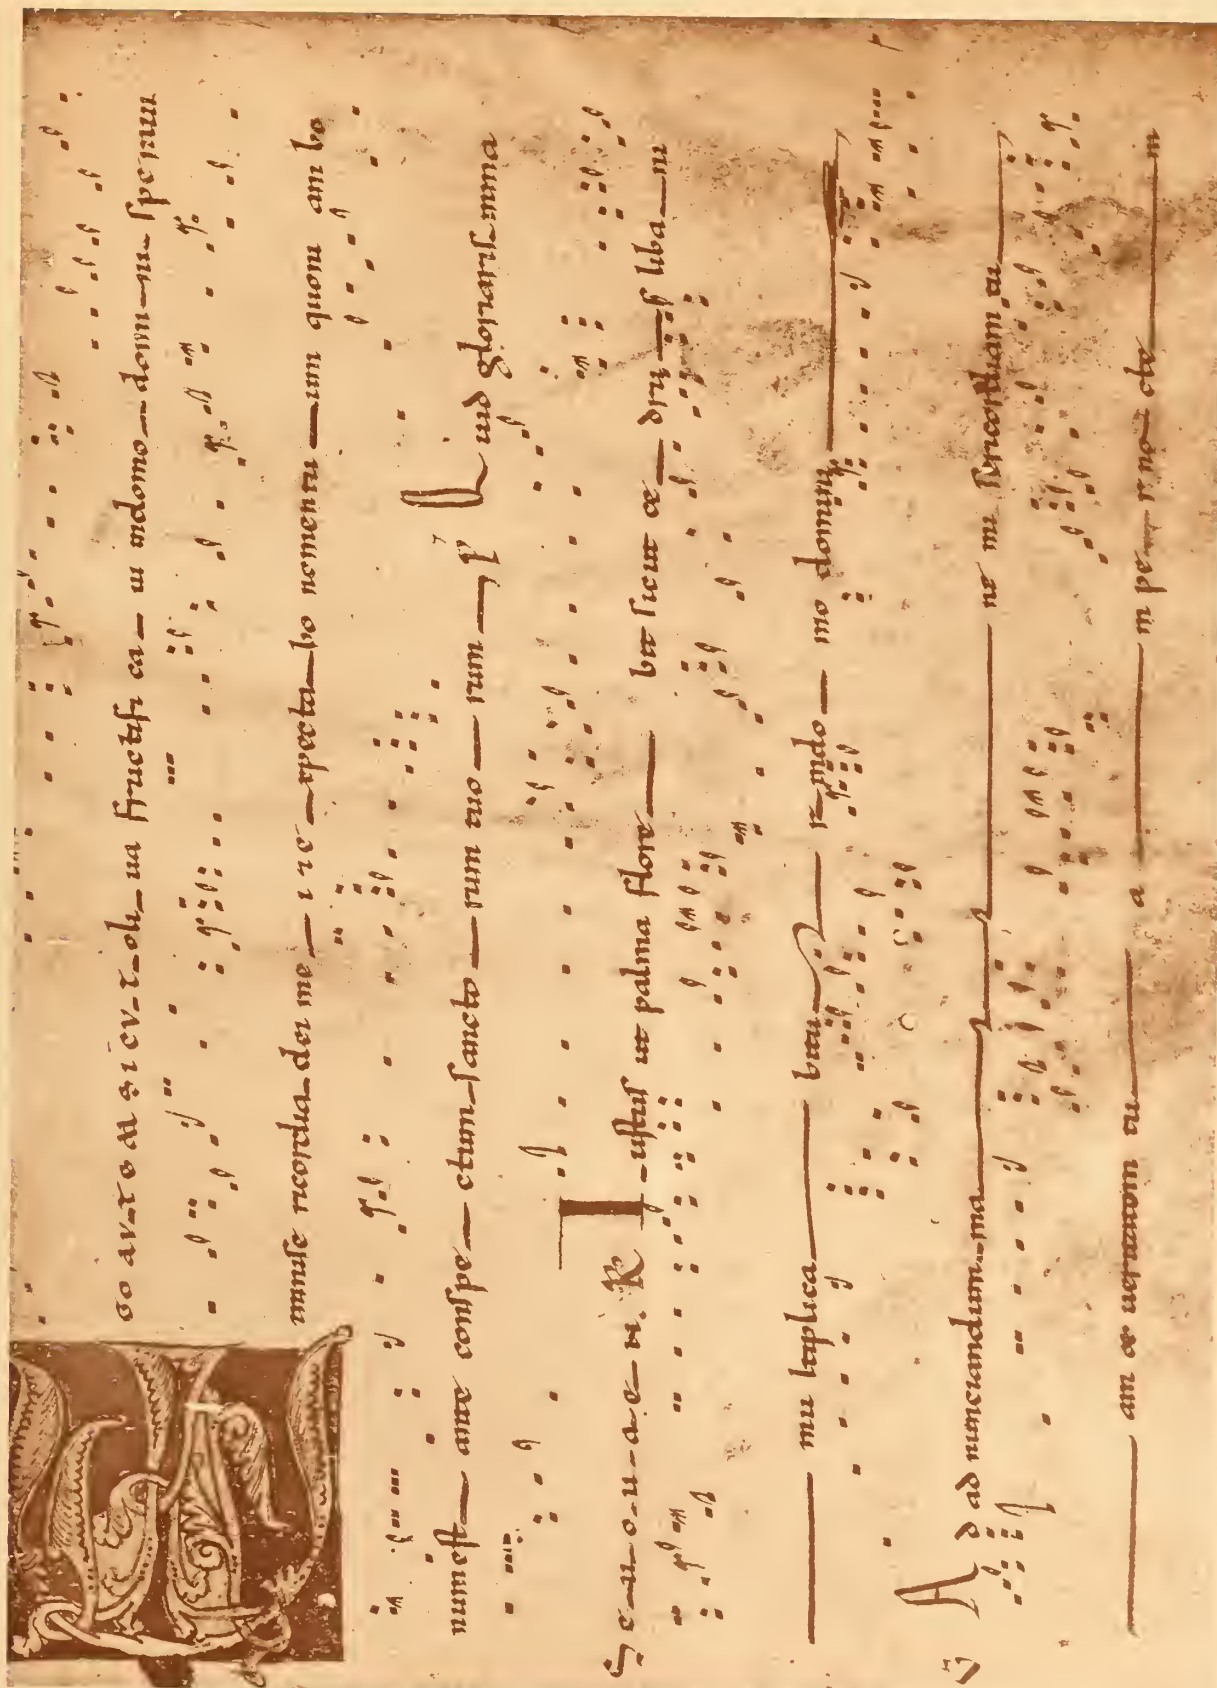 GO AVTEM SICVT oliua fructificaui indomo domini speraui
inmisericordia dei mei et expectabo nomen tuum quoniam bo
num est ante conspectum sanctorum tuorum P Quid gloriaris inma
Seuouaen. R Iustus ut palma florebit sicut cedrus libani
multiplicabitur indomo domini
Ad adnunciandum mane misericordiam tu
am et ueritatem tuam per noctem